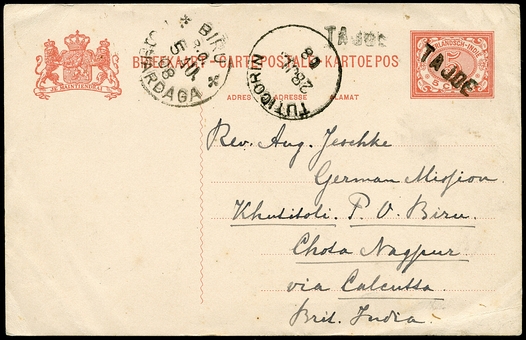 TAJOE
BRIEFKAART - CARTE POSTALE - KARTOEPOS
ADRES ADRESSE ALAMAT
JE MAINTIENDRAI
TAJOE
BIRU
LOHARDAGA
TUTICORIN
Rev. Aug. Jeschke
German Mission
Khutitoli. P. O. Biru.
Chota Nagpur
via Calcutta
Brit. India.